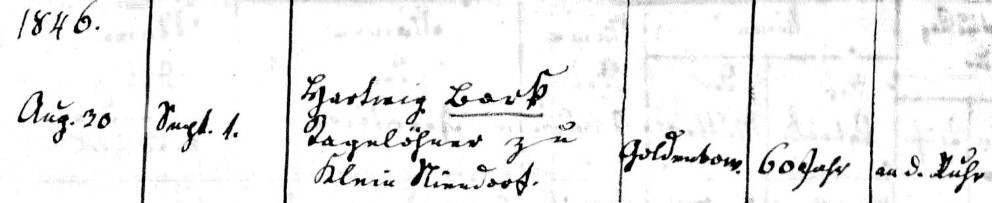 1846.
Aug. 30
Sept. 1.
Hartwig Bark
Tagelöhner zu
Klein Niendorf.
Goldenbow.
60 Jahr
an d. Ruhr